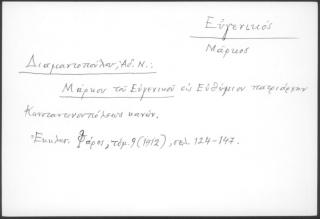 Εὐγενικός
Μάρκος
Διαμαντοπούλου, Ἀδ. Ν.:
Μάρκου τοῦ Εὐγενικοῦ εἰς Εὐθύμιον πατριάρχην
Κωνσταντινουπόλεως κανών.
Ἐκκλησ. Φάρος, τόμ. 9 (1912), σελ. 124-147.